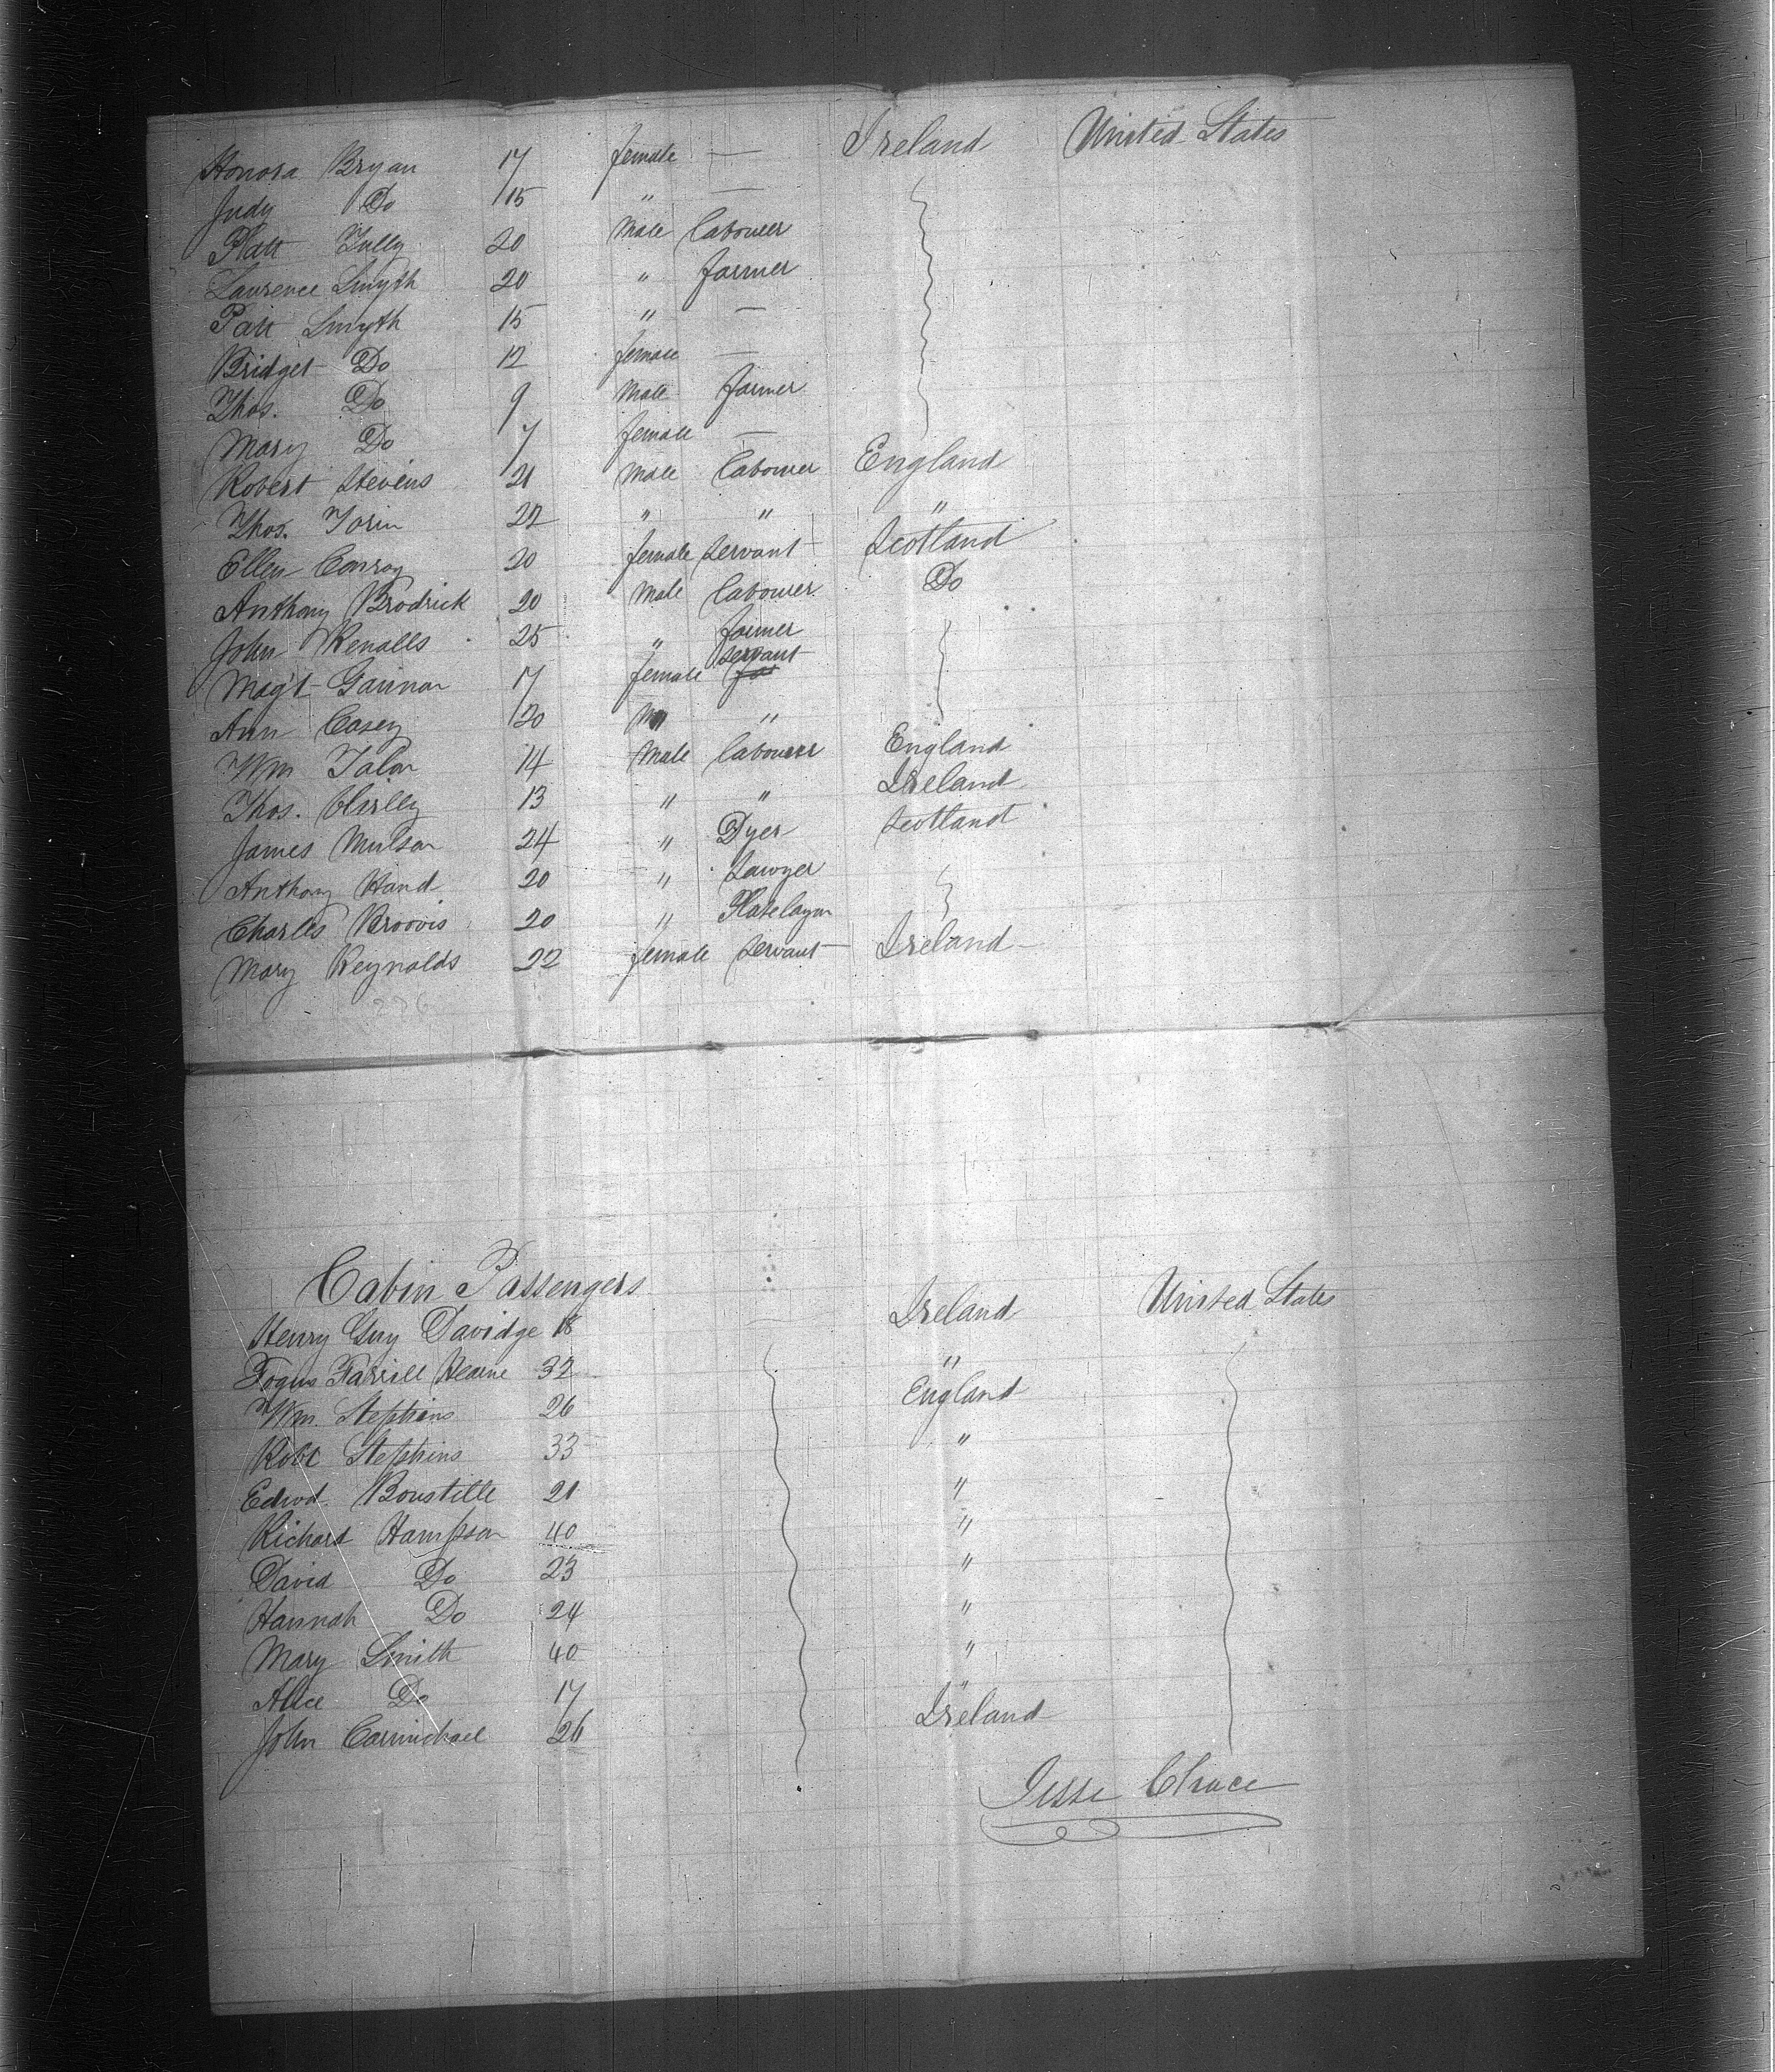 Honora Bryan 17 female — Ireland United States
Judy Do 15 " —
Patt Tully 20 Male labourer
Laurence Smyth 20 " farmer
Patt Smyth 15 " —
Bridget Do 12 female —
Thos. Do 9 Male farmer
Mary Do 7 female —
Robert Stevens 21 Male labourer England
Thos. Torin 22 " " "
Ellen Conroy 20 female servant Scotland
Anthony Brodrick 20 Male labourer Do
John Renalls 25 " farmer
Magt Gannon 17 female servant
Ann Casey 20 " "
Wm Talon 14 Male labourer England
Thos. 13 " " Ireland
James Mulson 24 " Dyer Scotland
Anthony Hand 20 " Sawyer
Charles 20 " Platelayer
Mary Reynolds 22 female servant Ireland
226
Cabin Passengers
Henry Guy Davidge 18 Ireland United States
Farrell Hearne 32 "
Wm. Stephens 26 England
Robt Stephens 33 "
Edwd. Boustille 21 "
Richard Hampson 40 "
David Do 23 "
Hannah Do 24 "
Mary Smith 40 "
Alice Do 17 "
John Carmichael 26 Ireland
Jesse Chace